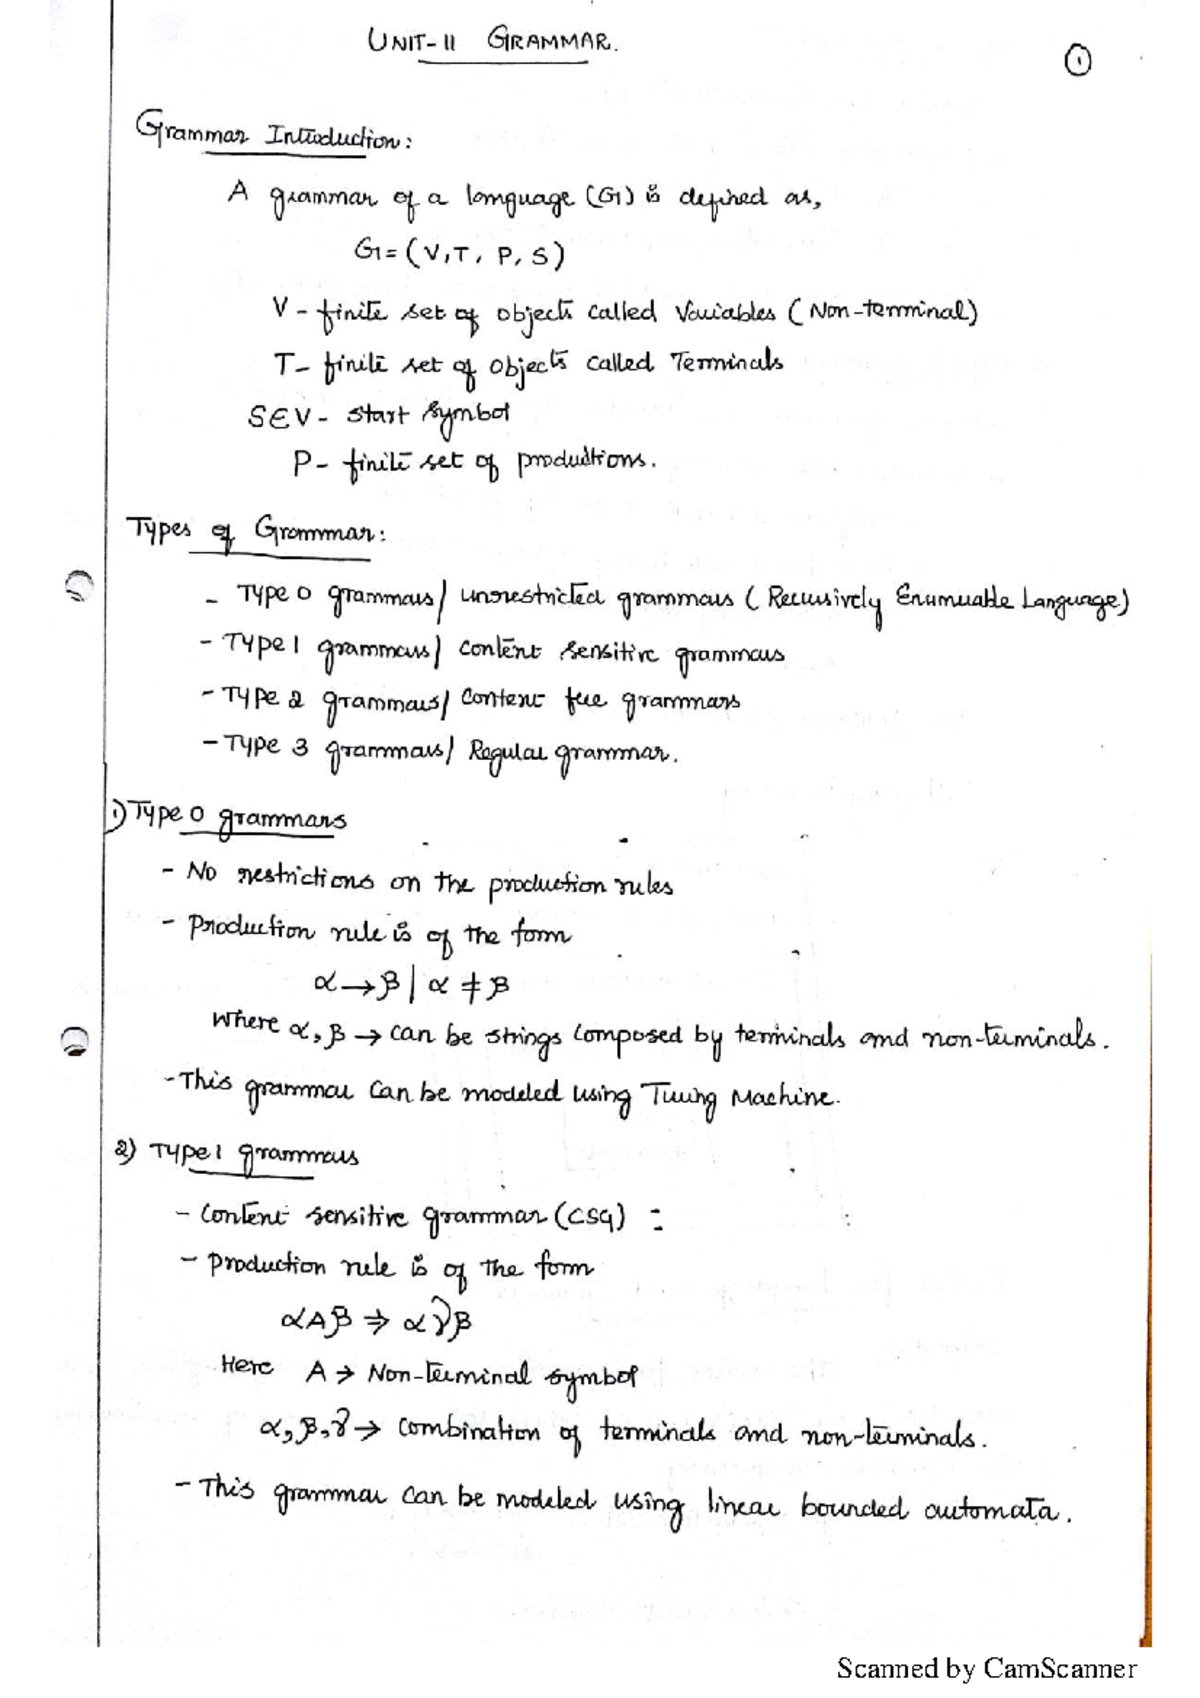 UNIT-II GRAMMAR.
①
Grammar Introduction:
A grammar of a language (G) is defined as,
G = (V, T, P, S)
V - finite set of objects called Variables (Non-terminal)
T - finite set of objects called Terminals
S∈V - start symbol
P - finite set of productions.
Types of Grammar:
- Type 0 grammars/ unrestricted grammars (Recursively Enumerable Language)
- Type 1 grammars/ content sensitive grammars
- Type 2 grammars/ content free grammars
- Type 3 grammars/ Regular grammar.
1) Type 0 grammars
- No restrictions on the production rules
- Production rule is of the form
α → β | α ≠ β
where α, β → can be strings composed by terminals and non-terminals.
- This grammar can be modeled using Turing Machine.
2) Type 1 grammars
- Content sensitive grammar (CSG) :
- Production rule is of the form
αAβ ⇒ αγβ
Here A → Non-terminal symbol
α, β, γ → combination of terminals and non-terminals.
- This grammar can be modeled using linear bounded automata.
Scanned by CamScanner